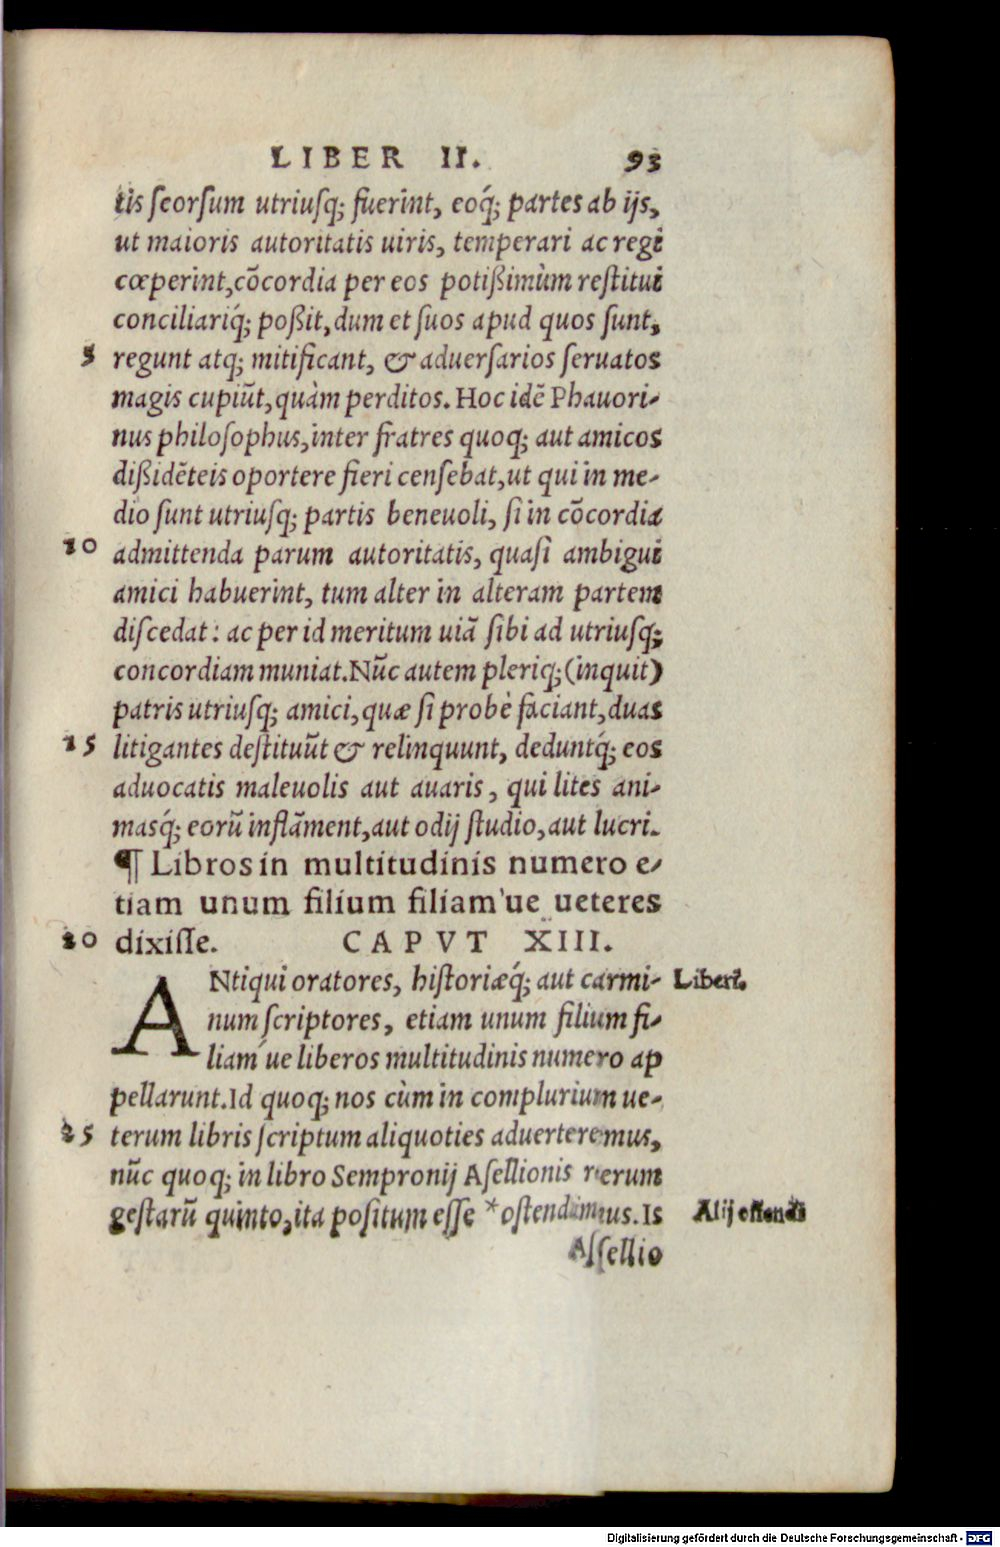 LIBER II. 93
tis ſeorſum utriuſq; fuerint, eoq́; partes ab ijs,
ut maioris autoritatis uiris, temperari ac regi
cœperint, cõcordia per eos potißimùm reſtitui
conciliariq́; poßit, dum et ſuos apud quos ſunt,
5 regunt atq; mitificant, & aduerſarios ſeruatos
magis cupiũt, quàm perditos. Hoc idẽ Phauori-
nus philoſophus, inter fratres quoq; aut amicos
dißidẽteis oportere fieri cenſebat, ut qui in me-
dio ſunt utriuſq; partis beneuoli, ſi in cõcordia
10 admittenda parum autoritatis, quaſi ambigui
amici habuerint, tum alter in alteram partem
diſcedat: ac per id meritum uiã ſibi ad utriuſq;
concordiam muniat. Nũc autem pleriq; (inquit)
patris utriuſq; amici, quæ ſi probè faciant, duas
15 litigantes deſtituũt & relinquunt, deduntq́; eos
aduocatis maleuolis aut auaris, qui lites ani-
masq́; eorũ inflãment, aut odij ſtudio, aut lucri.
¶ Libros in multitudinis numero e-
tiam unum filium filiam'ue ueteres
20 dixiſſe. CAPVT XIII.
ANtiqui oratores, hiſtoriæq́; aut carmi- Liberi.
num ſcriptores, etiam unum filium fi-
liam'ue liberos multitudinis numero ap
pellarunt. Id quoq; nos cùm in complurium ue-
25 terum libris ſcriptum aliquoties aduerteremus,
nũc quoq; in libro Sempronij Aſellionis rerum
geſtarũ quinto, ita poſitum eſſe * oſtendimus. Is Alij offendi
Aſſellio
Digitalisierung gefördert durch die Deutsche Forschungsgemeinschaft - DFG